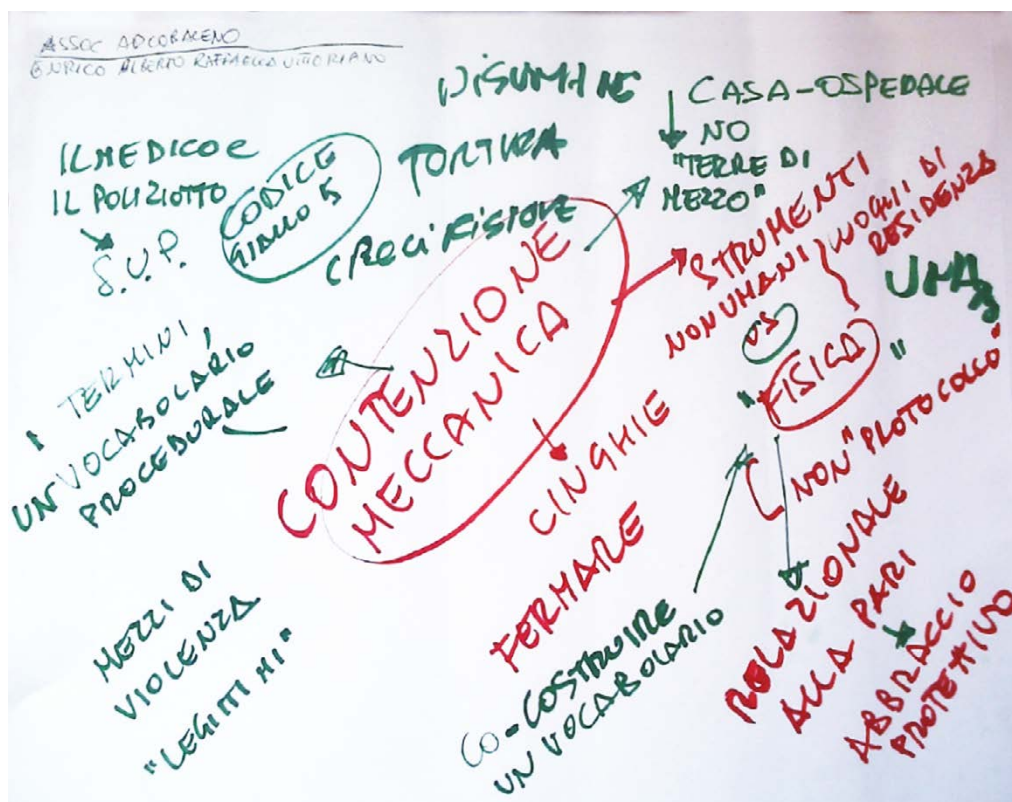 ASSOC ADCOBALENO
ENRICO ALBERTO RAFFAELLA VITTORIANO
DISUMANE
CASA-OSPEDALE
NO
"TERRE DI
MEZZO"
IL MEDICO e
IL POLIZIOTTO
S.U.P.
CODICE
GIALLO 5
TORTURA
CROCIFISSIONE
STRUMENTI
NON UMANI
LUOGHI DI
RESIDENZA
UMA
VS
"FISICA"
NON "PROTOCOLLO"
CONTENZIONE
MECCANICA
I TERMINI,
UN VOCABOLARIO
PROCEDURALE
CINGHIE
FERMARE
MEZZI DI
VIOLENZA
"LEGITTIMI"
CO-COSTRUIRE
UN VOCABOLARIO
RELAZIONALE
ALLA PARI
ABBRACCIO
PROTETTIVO